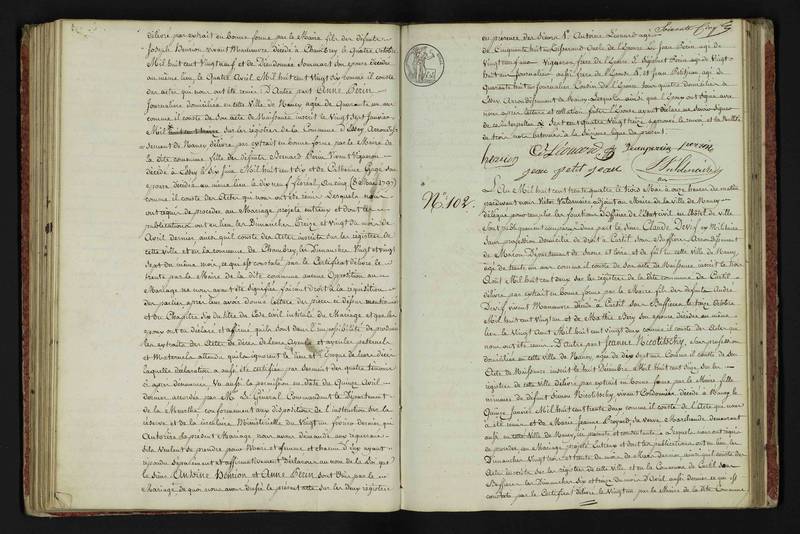 délivré par extrait en bonne forme par le Maire fils des défunts
Joseph Henrion vivant Manœuvre décédé à Chambrey le quatre octobre
Mil huit cent vingt neuf et de
au même lieu, le quatre Avril Mil huit cent vingt six comme il conste
des actes qui nous ont été remis D'Autre part Anne Perin
Journalière domiciliée en cette Ville de Nancy agée de quarante un ans
comme il conste de son acte de Naissance inscrit le vingt sept Janvier
Mil sur les régistres de la Commune d'Essey Arrondis-
sement de Nancy délivré par extrait en bonne forme par le Maire de
la dite commune fille des défunts Bernard Perin Vivant Vigneron
décédé à Essey le dix Juin Mil huit cent dix et de Catherine
épouse décédée au même lieu le dix neuf floréal, an cinq (8 Mai 1797)
comme il conste des Actes qui nous ont été remis Lesquels nous
ont requis de procéder au Mariage projeté entr'eux et dont les
publications ont eu lieu les Dimanches treize et vingt du mois de
Avril dernier ainsi qu'il conste des Actes inscrits sur les régistres de
cette Ville et en la commune de Chambrey les Dimanches vingt et vingt
sept du même mois, ce qui est constaté par le Certificat délivré le
trente par le Maire de la dite commune aucune Opposition au
Mariage ne nous ayant été signifiée faisant droit à la réquisition
des parties après leur avoir donné lecture des pièces ci dessus mentionnées
et du Chapitre Six du titre du Code civil intitulé du Mariage et que les
époux ont en déclaré et affirmé qu'ils sont dans l'impossibilité de produire
les extraits des Actes de décès de leurs Ayeuls et ayeules paternels
et Maternels attendu qu'ils ignorent le lieu et l'époque de leurs décès
laquelle déclaration a aussi été certifiée par serment des quatre témoins
ci après dénommés. Vu aussi la permission en date du quinze Avril
dernier accordée par Mr Le Général Commandant le Département
de la Meurthe conformément aux dispositions de l'instruction sur la
réserve et de la circulaire Ministérielle du Vingt un février dernier qui
Autorise le présent Mariage nous avons demandé aux requérants
S'ils veulent se prendre pour Mari et femme et chacun d'eux ayant
répondu séparément et affirmativement déclarons au nom de la Loi que
le Sieur Antoine Henrion et Anne Perin sont Unis par le
Mariage de quoi nous avons dressé le présent acte sur les deux régistres
Soixante Cinq
en présence des Sieurs Antoine Lienard agé
de Cinquante huit ans oncle de l'Epouse Jean Perin agé de
Vingt neuf ans Vigneron frère de l'Epouse Sigisbert Perin agé de Vingt
huit ans Journalier aussi frère de l'Epouse et Jean Petitjean agé de
Quarante huit ans Journalier Cousin de l'Epouse tous quatre domiciliés à
Essey Arrondissement de Nancy Lesquels ainsi que l'Epoux ont signé avec
nous après lecture et collation faite l'Epouse ayant déclaré ne savoir signer
de trois mots
henrion Lienard Jean perrin perrin
jean petit jean
Nº. 102.
L'An Mil huit cent trente quatre le trois Mai à onze heures du matin
pardevant nous Adjoint au Maire de la ville de Nancy
délégué pour remplir les fonctions d'Officier de l'Etat civil en l'hôtel de Ville
sont publiquement comparus d'une part le Sieur Claude Devif ex Militaire
sans profession domicilié de droit à Curtil sous Buffières Arrondissement
de Macon Département de Saone et Loire et de fait en cette ville de Nancy
agé de trente un ans comme il conste de son acte de Naissance inscrit le trois
Août Mil huit cent deux sur les régistres de la dite commune de Curtil
délivré par extrait en bonne forme par le Maire fils des défunts André
Devif vivant Manœuvre décédé à Curtil sous Buffières le treize Octobre
Mil huit cent vingt un et de Marthe son épouse décédée au même
lieu le Vingt Août Mil huit cent vingt deux comme il conste des Actes qui
nous ont été remis D'Autre part Jeanne Nicotitschy, sans profession
domiciliée en cette ville de Nancy, agée de dix sept ans Comme il conste de son
Acte de Naissance inscrit le huit Décembre Mil huit cent seize sur les
régistres de cette Ville délivré par extrait en bonne forme par le Maire fille
mineure du défunt Simon Nicotitschy, vivant Cordonnier décédé à Nancy le
Quinze Janvier Mil huit cent trente deux comme il conste de l'Acte qui nous
a été remis et de Marie Jeanne sa veuve Marchande demeurant
aussi en cette Ville de Nancy, ici présente et consentante, Lesquels nous ont requis
de procéder au Mariage projeté Entr'eux et dont les publications ont eu lieu les
Dimanches Vingt trois et trente du mois de Mars dernier ainsi qu'il conste des
Actes inscrits sur les régistres de cette ville et en la Commune de Curtil sous
Buffières les Dimanches six et treize du mois d'Avril aussi dernier ce qui est
constaté par le Certificat délivré le Vingt un par le Maire de la dite Commune